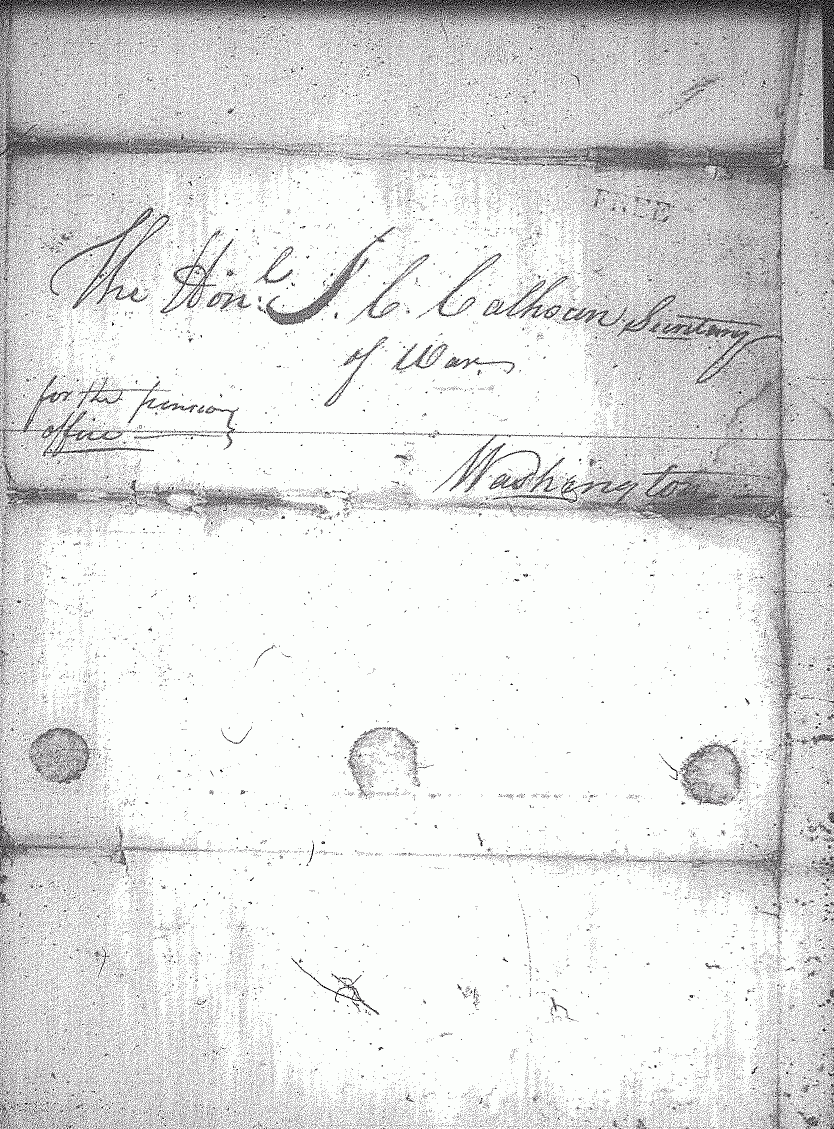 FREE
The Honle. J. C. Calhoun Secretary
of War
for the pension
office
Washington